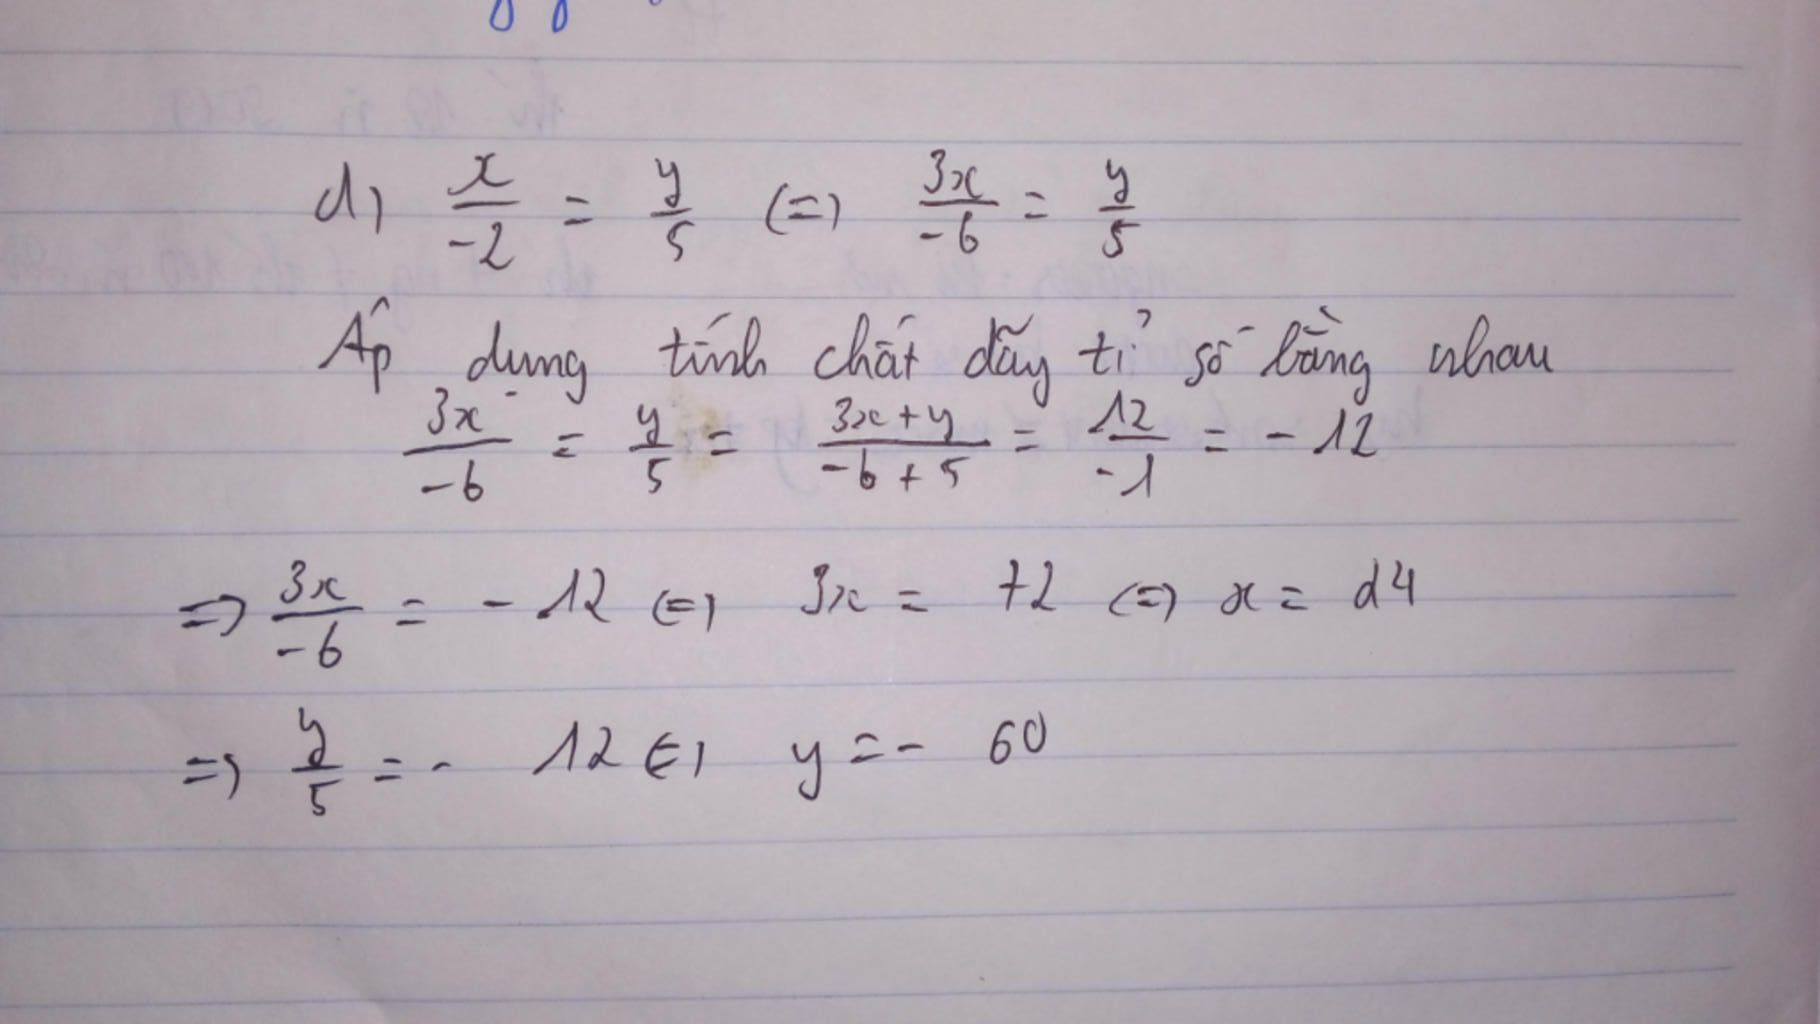 d) x/-2 = y/5 (=) 3x/-6 = y/5
Áp dụng tính chất dãy tỉ số bằng nhau
3x/-6 = y/5 = 3x+y/-6+5 = 12/-1 = -12
=> 3x/-6 = -12 (=) 3x = 72 (=) x = 24
=> y/5 = -12 (=) y = -60